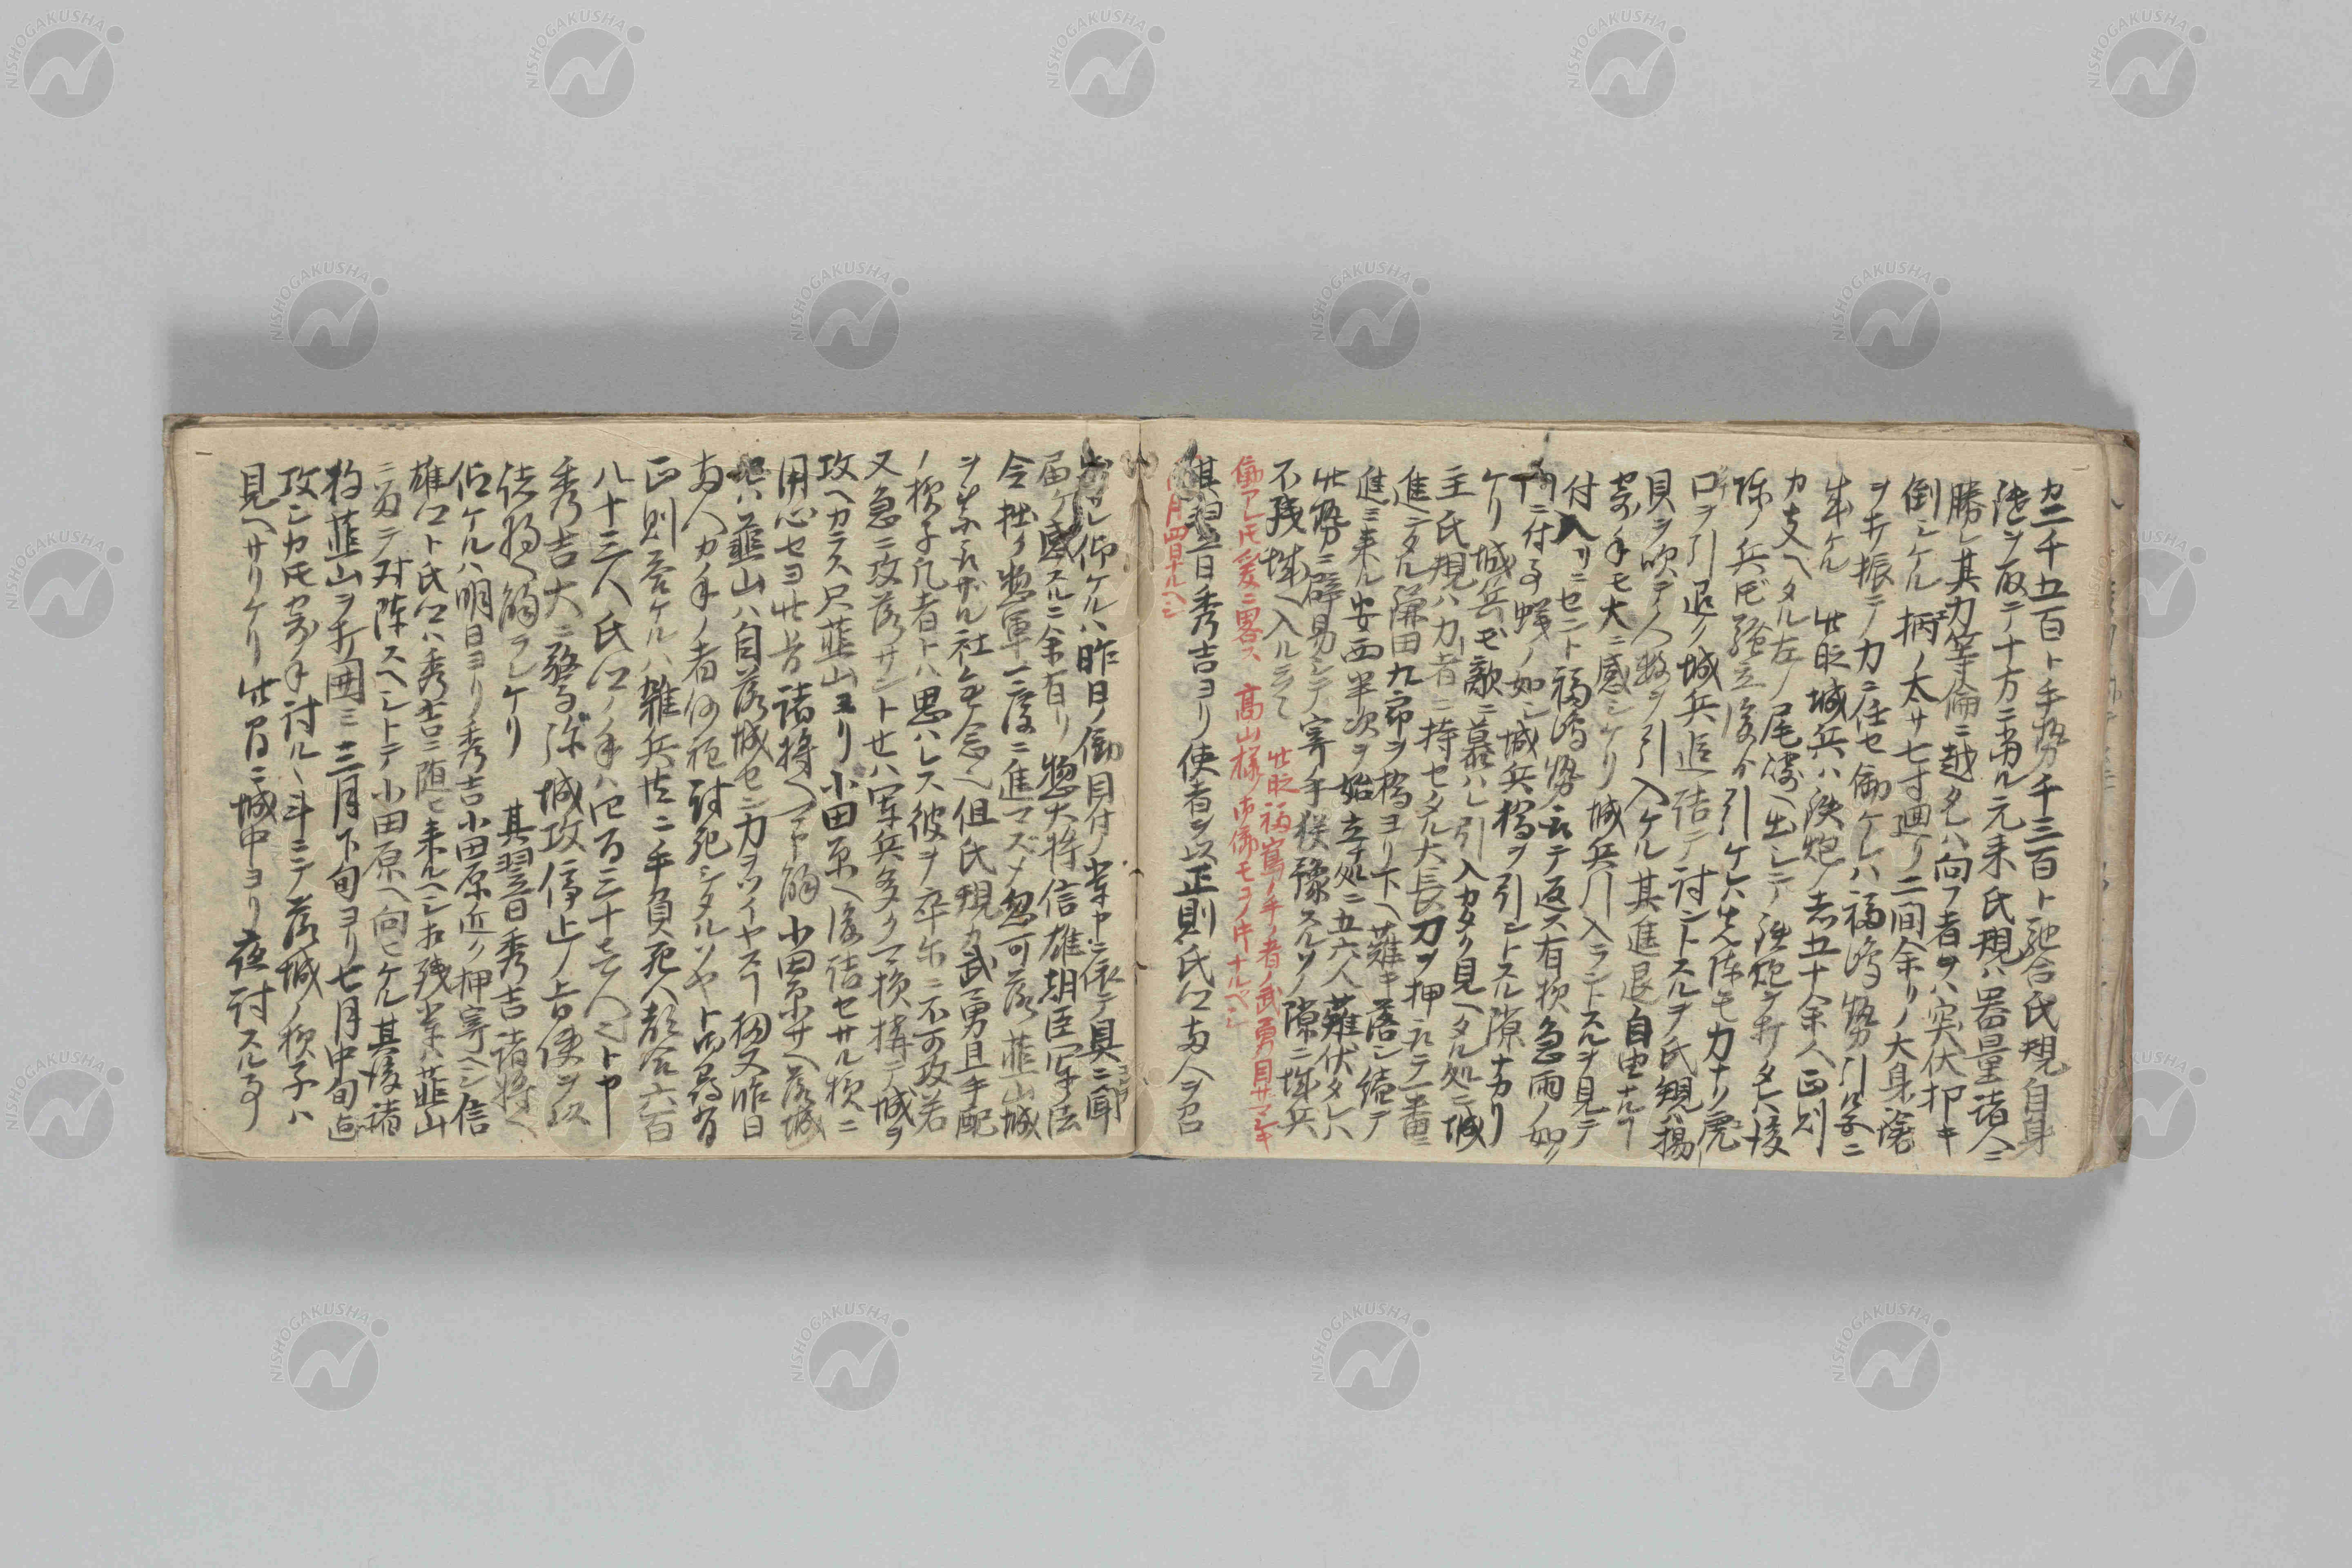 カ二千五百ト手勢千三百ト馳合氏規自身
陣ヲ取テ十方ニ当ル元来氏規ハ器量諸人ニ
勝レ其力等倫ニ越タレハ向フ者ヲハ突伏抑キ
倒シケル柄ノ太サ七寸廻リ二間余リノ大身ノ鑓
ヲ打振テ力ニ任セ働ケレハ福嶋勢引ル色ニ
成ケル 此時城兵ハ鉄炮ノ者五十余人正則
カ支ヘタル左ノ尾崎ヘ出シテ鉄炮ヲ打タレハ後
陣ノ兵ドモ騒立後ヘ引ケレハ先陣モカナリ虎
口ヲ引退ク城兵追詰テ討ントスルヲ氏規ハ揚
貝ヲ吹テ人数ヲ引入ケル其進退自由ナルヿ
寄手モ大ニ感シケリ城兵引入ラントスルヲ見テ
付入リニセント福嶋勢 テ返ス有様急雨ノ如ク
門ニ付事蟻ノ如シ城兵橋ヲ引ントスル隙ナカリ
ケリ城兵モ敵ニ慕ハレ引入カタク見ヘタル処ニ城
主氏規ハ力者ニ持セタル大長刀ヲ押取テ一番ニ
進テタル 田九郎ヲ橋ヨリ下ヘ薙キ落シ続テ
進ミ来ル安西半次ヲ始立処ニ五六人薙伏タレハ
此勢ニ辟易シテ寄手猶豫スルソノ隙ニ城兵
不残城ヘ入ルニテ
此時福嶌ノ手ノ者ノ武勇目サマシキ
働アレ氏爰ニ畧ス 高山様ノ御働モヨノ中ナルベシ
月四日ナルヘシ
其翌日秀吉ヨリ使者ヲ以正則氏江両人ヲ召
レ仰ケルハ昨日ノ働目付ノ者 ニ依テ具ニ聞
届ケ感スルニ余有リ惣大将信雄朝臣軍法
令拙ク惣軍一度ニ進マズメ忽可落韮山城
ヲ落サザル社無念ヘ但氏規カ武勇且手配
ノ様子凡者トハ思ハレス彼ヲ卒尓ニ不可攻若
又急ニ攻落サントセハ軍兵多ク損構テ城ヲ
攻ヘカラス只韮山ヨリ小田原ヘ後詰セサル様ニ
用心セヨ此旨諸将ヘ可申觸小田原サヘ落城
セハ韮山ハ自落城セン力ヲツイヤスヿ扨又昨日
両人カ手ノ者何程討死シタルソヤト御尋有
正則答ケルハ雑兵共ニ手負死人都合六百
八十三人氏江ノ手ハ四百三十壱人ニトヤ
秀吉大ニ驚弥城攻停止ノ旨使ヲ以
諸将ヘ觸ラレケリ 其翌日秀吉諸将ヘ
仰ケルハ明日ヨリ秀吉小田原近ク押寄ヘシ信
雄江ト氏江ハ秀吉ニ随ヒ来ルヘシ相残輩ハ韮山
ニ而テ対陣スヘシトテ小田原ヘ向ヒケル其後諸
将韮山ヲ打囲ミ三月下旬ヨリ七月中旬迄
攻シカ氏寄手討ルヽ斗ニテ落城ノ様子ハ
見ヘサリケリ此日ニ城中ヨリ夜討スル事